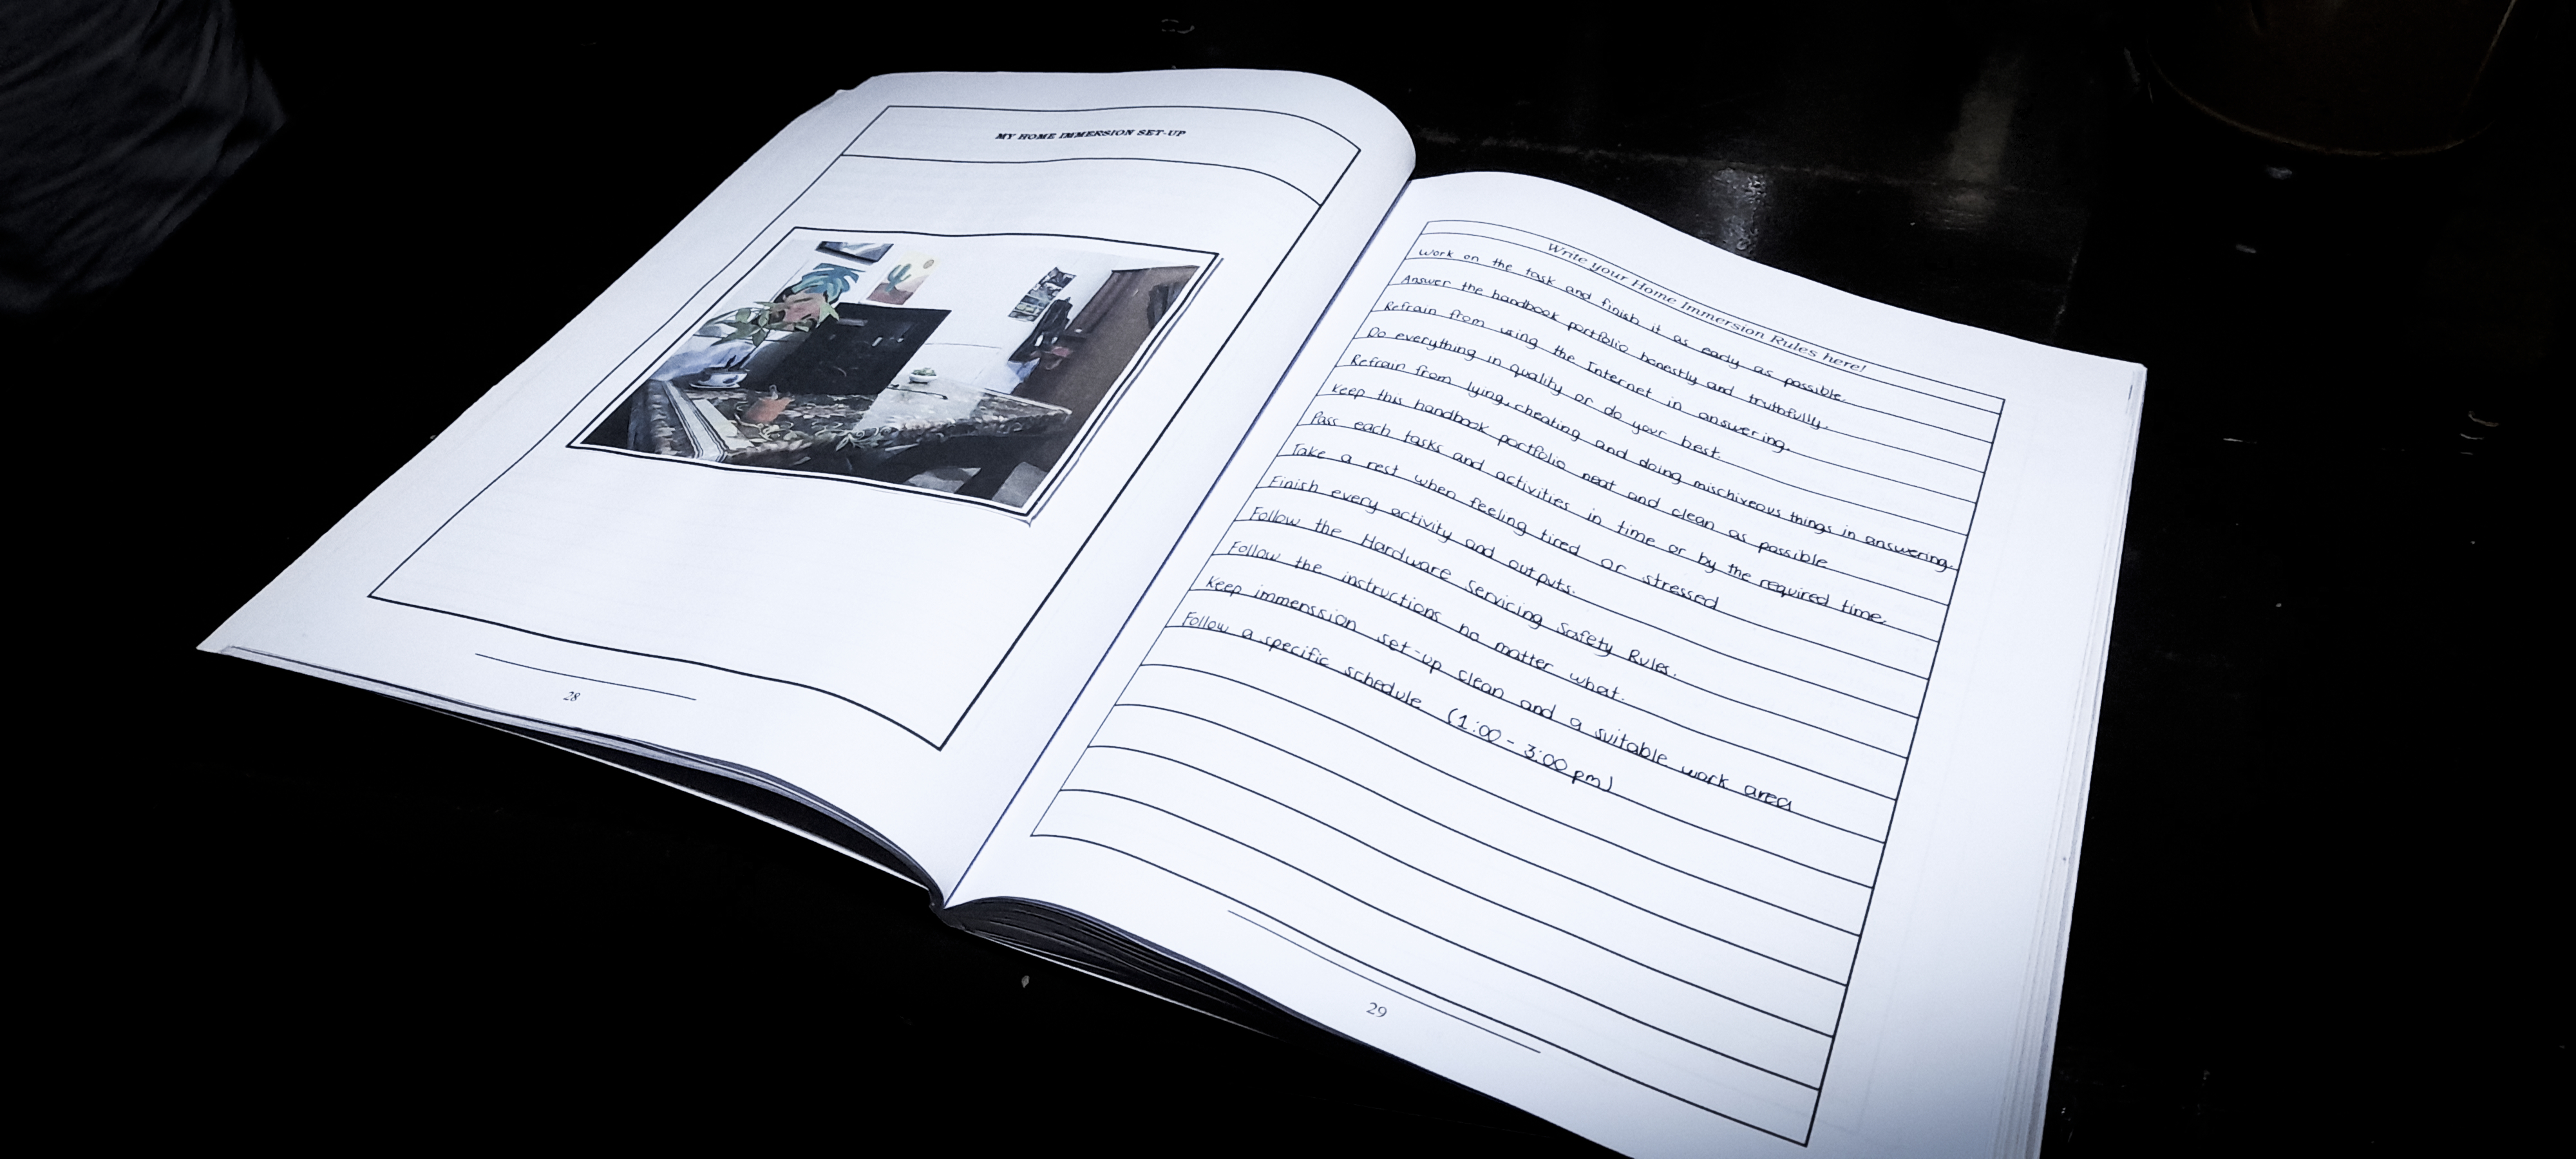 MY HOME IMMERSION SET-UP
28
Write your Home Immersion Rules here!
Work on the task and finish it as early as possible.
Answer the handbook portfolio honestly and truthfully.
Refrain from using the Internet in answering.
Do everything in quality or do your best.
Refrain from lying, cheating and doing mischiveous things in answering.
Keep this handbook portfolio neat and clean as possible
Pass each tasks and activities in time or by the required time.
Take a rest when feeling tired or stressed
Finish every activity and outputs.
Follow the Hardware Servicing Safety Rules.
Follow the instructions no matter what.
Keep immenssion set-up clean and a suitable work area
Follow a specific schedule (1:00 - 3:00 pm)
29